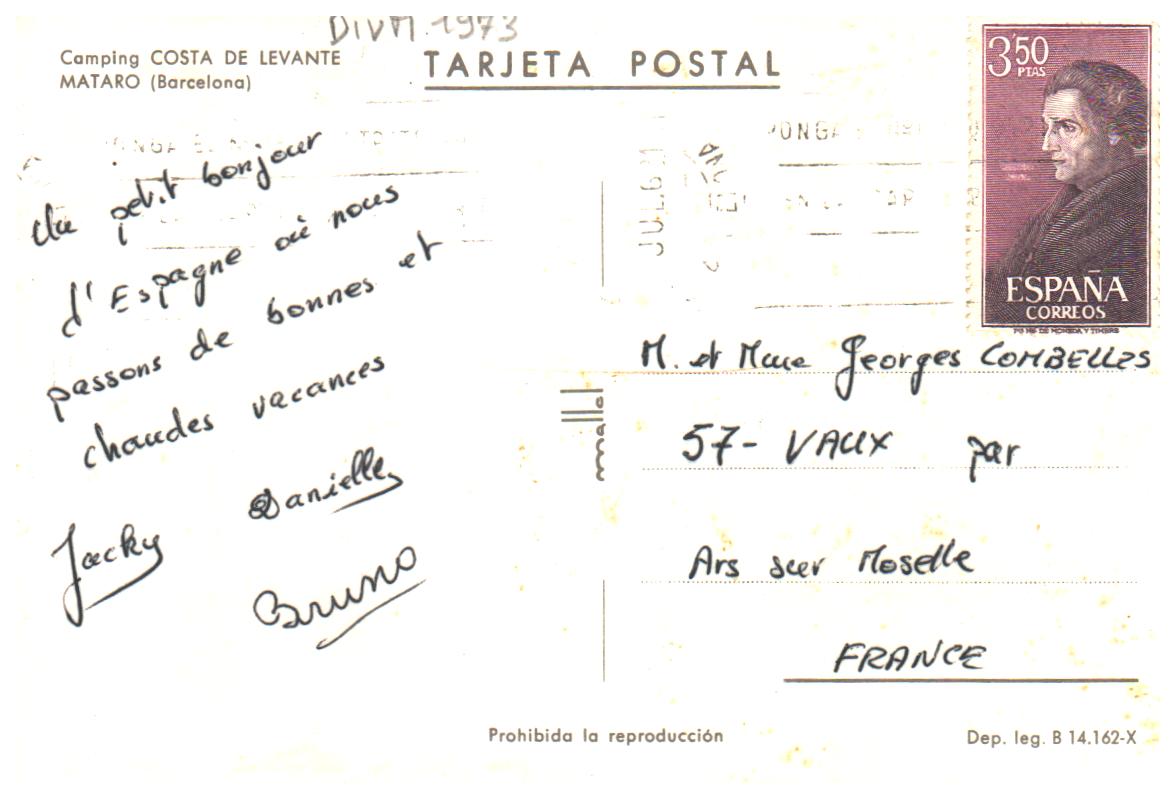 DIVM 1973
Camping COSTA DE LEVANTE
MATARO (Barcelona)
TARJETA POSTAL
3'50
PTAS
ESPAÑA
CORREOS
PONGA
Un petit bonjour
d'Espagne où nous
passons de bonnes et
chaudes vacances
Danielle
Jacky
Bruno
M. et Mme Georges COMBELLES
57- VAUX par
Ars sur Moselle
FRANCE
Prohibida la reproducción
Dep. leg. B 14.162-X